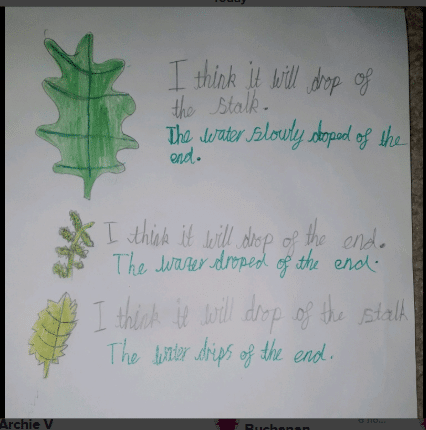 Today
I think it will drop of
the stalk.
The water slowly droped of the
end.
I think it will drop of the end.
The water droped of the end.
I think it will drop of the stalk
The water drips of the end.
Archie V
Buchanan